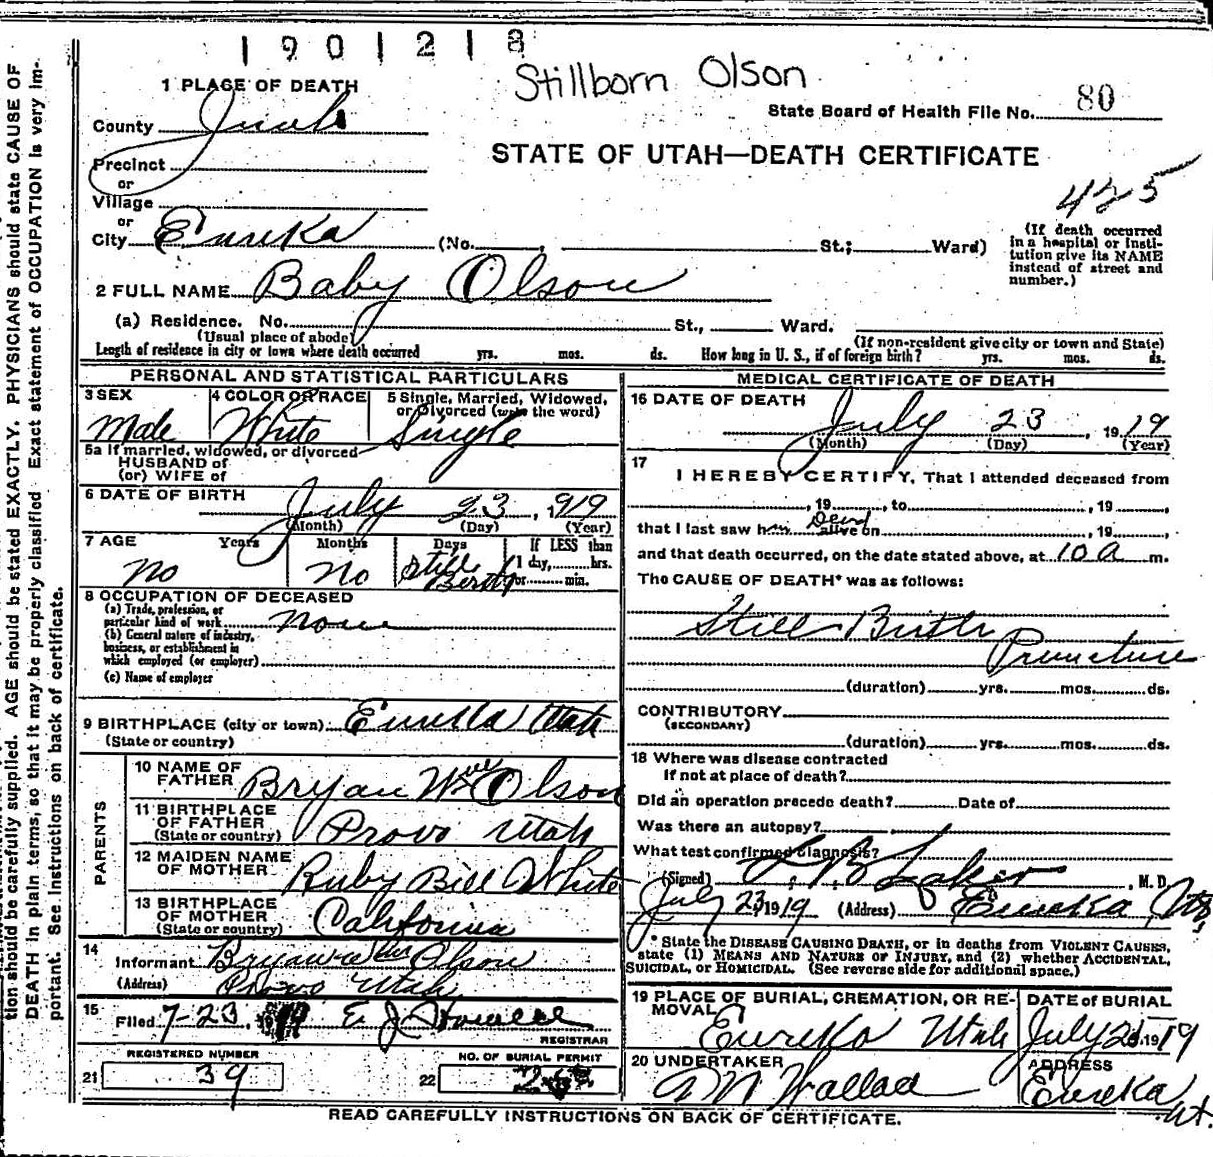 1901218
Stillborn Olson
1 PLACE OF DEATH
State Board of Health File No. 80
County Juab
STATE OF UTAH—DEATH CERTIFICATE
Precinct
or
Village
425
or
City Eureka (No. , St.; Ward)
(If death occurred in a hospital or institution give its NAME instead of street and number.)
2 FULL NAME Baby Olson
(a) Residence. No. St., Ward.
(Usual place of abode) (If non-resident give city or town and State)
Length of residence in city or town where death occurred yrs. mos. ds. How long in U. S., if of foreign birth? yrs. mos. ds.
PERSONAL AND STATISTICAL PARTICULARS
3 SEX Male
4 COLOR OR RACE White
5 Single, Married, Widowed, or Divorced (write the word) Single
5a If married, widowed, or divorced
HUSBAND of
(or) WIFE of
6 DATE OF BIRTH July 23, 1919
(Month) (Day) (Year)
7 AGE Years Months Days If LESS than
No No Still Birth 1 day, hrs.
or min.
8 OCCUPATION OF DECEASED
(a) Trade, profession, or
particular kind of work none
(b) General nature of industry,
business, or establishment in
which employed (or employer)
(c) Name of employer
9 BIRTHPLACE (city or town) Eureka Utah
(State or country)
PARENTS
10 NAME OF FATHER Bryan Wm Olson
11 BIRTHPLACE OF FATHER (State or country) Provo Utah
12 MAIDEN NAME OF MOTHER Ruby Bill White
13 BIRTHPLACE OF MOTHER (State or country) California
14
Informant Olson
(Address) Provo Utah
15
Filed 7-23, E J Howell
REGISTRAR
REGISTERED NUMBER
21 39
NO. OF BURIAL PERMIT
22
MEDICAL CERTIFICATE OF DEATH
16 DATE OF DEATH July 23, 1919
(Month) (Day) (Year)
17
I HEREBY CERTIFY, That I attended deceased from
, 19 , to , 19 ,
that I last saw him Dead alive on , 19 ,
and that death occurred, on the date stated above, at 10 a m.
The CAUSE OF DEATH* was as follows:
Still Birth
Premature
(duration) yrs. mos. ds.
CONTRIBUTORY
(SECONDARY)
(duration) yrs. mos. ds.
18 Where was disease contracted
if not at place of death?
Did an operation precede death? Date of
Was there an autopsy?
What test confirmed diagnosis?
(Signed) , M. D.
July 23, 1919 (Address) Eureka
* State the DISEASE CAUSING DEATH, or in deaths from VIOLENT CAUSES,
state (1) MEANS AND NATURE OF INJURY, and (2) whether ACCIDENTAL,
SUICIDAL, or HOMICIDAL. (See reverse side for additional space.)
19 PLACE OF BURIAL, CREMATION, OR REMOVAL
Eureka Utah
DATE of BURIAL
July 1919
20 UNDERTAKER
ADDRESS
Eureka
Ut.
READ CAREFULLY INSTRUCTIONS ON BACK OF CERTIFICATE.
tion should be carefully supplied. AGE should be stated EXACTLY. PHYSICIANS should state CAUSE OF
DEATH in plain terms, so that it may be properly classified. Exact statement of OCCUPATION is very im-
portant. See instructions on back of certificate.